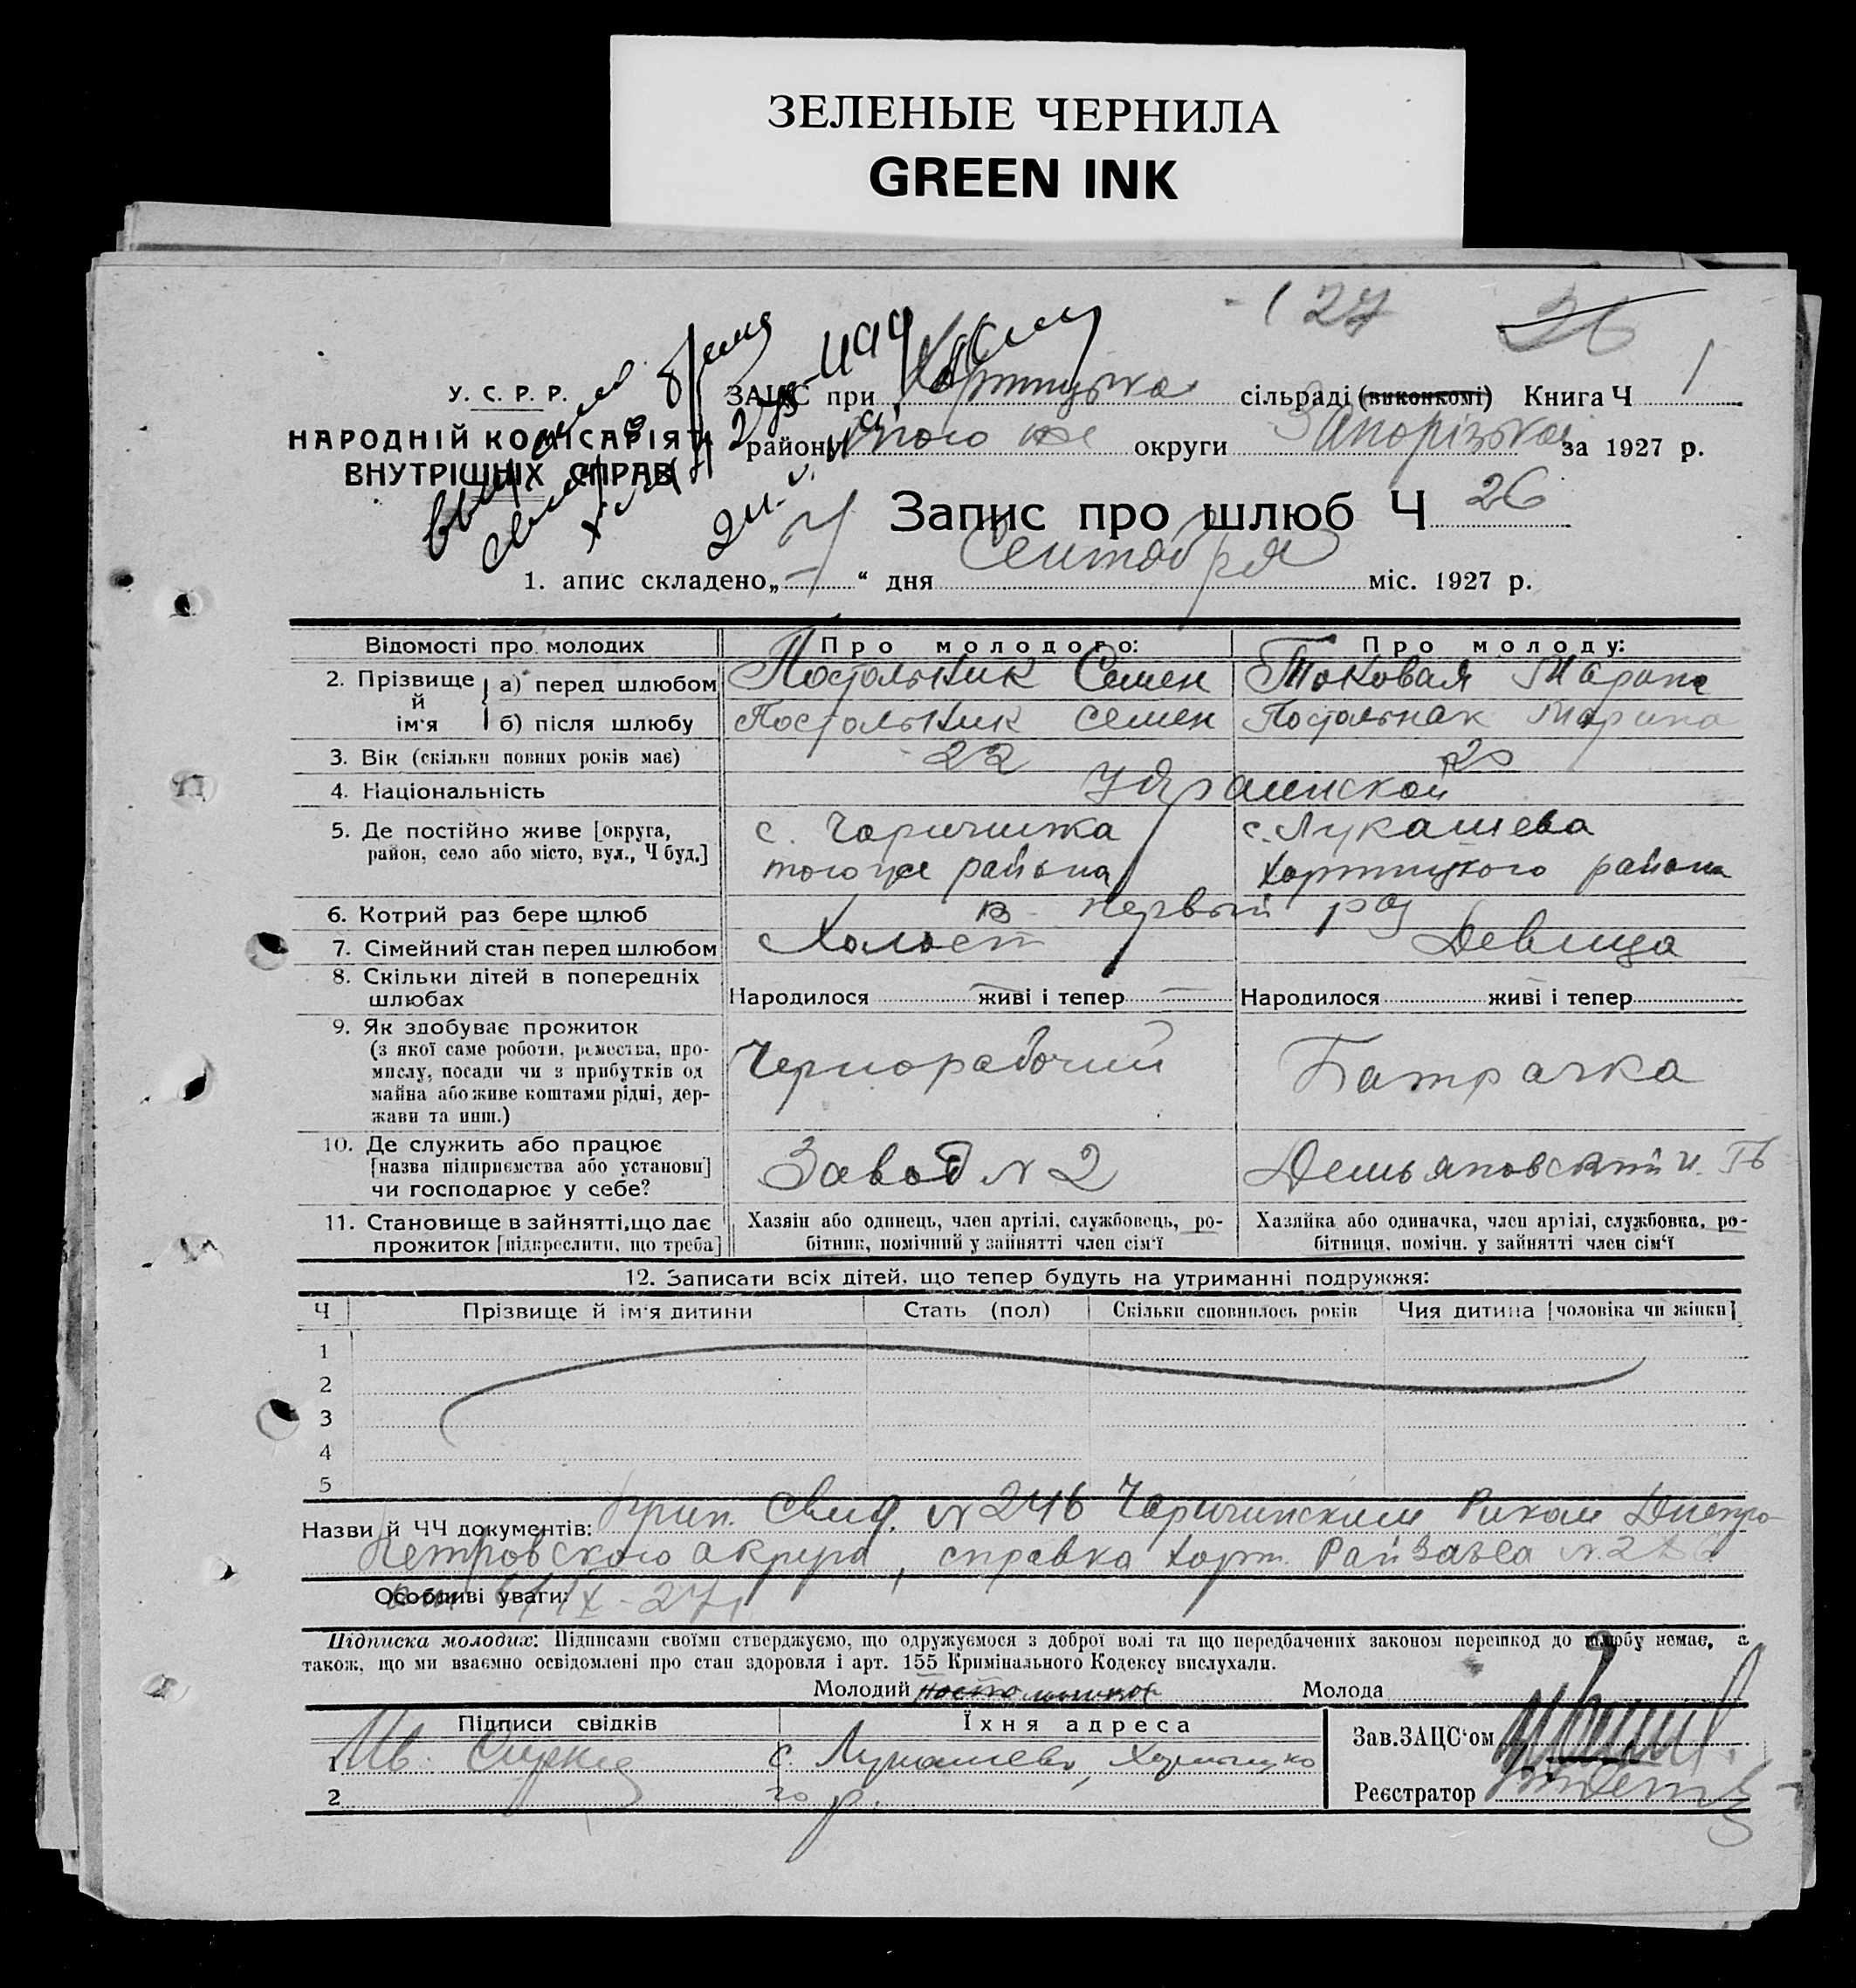 ЗЕЛЕНЫЕ ЧЕРНИЛА
GREEN INK
127
26
У. С. Р. Р.
НАРОДНІЙ КОМІСАРІЯТ
ВНУТРІШНІХ СПРАВ
ЗАЦС при Хортицька сільраді (виконкомі) Книга Ч 1
району того же округи Запорізькой за 1927 р.
Запис про шлюб Ч 26
1. апис складено „ 7 “ дня Сентября міс. 1927 р.
Відомості про молодих
Про молодого:
Про молоду:
2. Прізвище й ім'я
а) перед шлюбом
Постольник Семен
Токовая Марина
б) після шлюбу
Постольник Семен
Постольнак Марина
3. Вік (скільки повних років має)
22
20
4. Національність
Украинской
5. Де постійно живе [округа,
район, село або місто, вул., Ч буд.]
с. Чаричижка
того же района
с. Лукашева
Хортицкого района
6. Котрий раз бере шлюб
в первый раз
7. Сімейний стан перед шлюбом
Холост
Девица
8. Скільки дітей в попередніх
шлюбах
Народилося живі і тепер
Народилося живі і тепер
9. Як здобуває прожиток
(з якої саме роботи, ремества, про-
мислу, посади чи з прибутків од
майна або живе коштами рідні, дер-
жави та инш.)
Чернорабочий
Батрачка
10. Де служить або працює
[назва підприємства або установи]
чи господарює у себе?
Завод № 2
11. Становище в зайнятті, що дає
прожиток [підкреслити, що треба]
Хазяін або одинець, член артілі, службовець, ро-
бітник, помічний у зайнятті член сім'ї
Хазяйка або одиначка, член артілі, службовка, ро-
бітниця, помічн. у зайнятті член сім'ї
12. Записати всіх дітей, що тепер будуть на утриманні подружжя:
Ч
Прізвище й ім'я дитини
Стать (пол)
Скільки сповнилось років
Чия дитина [чоловіка чи жінки]
1
2
3
4
5
Назви й ЧЧ документів: Свид. № 2416 Чаричинским Риком Днепро-
Петровского округа, справка Хорт. Райзагса №
Особливі уваги:
Підписка молодих: Підписами своїми стверджуємо, що одружуємося з доброї волі та що передбачених законом перешкод до шлюбу немає, а
також, що ми взаємно освідомлені про стан здоровля і арт. 155 Кримінального Кодексу вислухали.
Молодий
Молода
Підписи свідків
Їхня адреса
Зав.ЗАЦС'ом
1 Ив.
с. Лукашево, Хортицко
2
го р.
Реєстратор